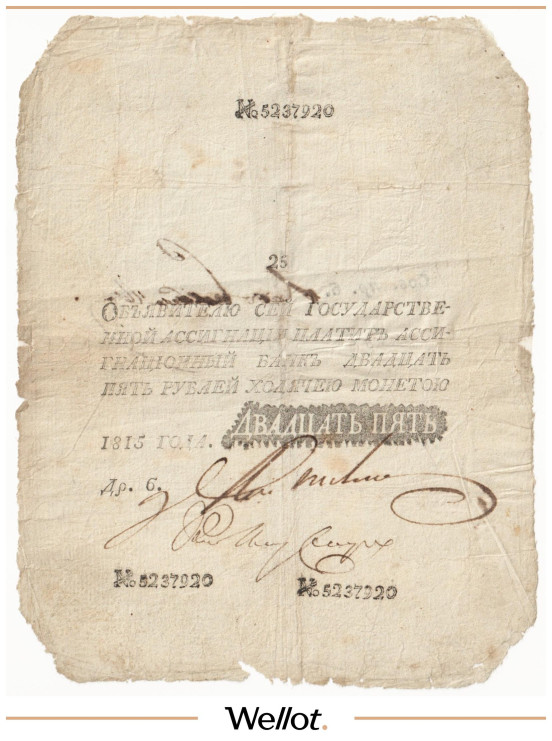 № 5237920
25
ОБЪЯВИТЕЛЮ СЕЙ ГОСУДАРСТВЕ-
ННОЙ АССИГНАЦІИ ПЛАТИТЪ АССИ-
ГНАЦІОННЫЙ БАНКЪ ДВАДЦАТЬ
ПЯТЬ РУБЛЕЙ ХОДЯЧЕЮ МОНЕТОЮ
1815 ГОДА. ДВАДЦАТЬ ПЯТЬ
Др. 6.
№ 5237920 № 5237920
Wellot.